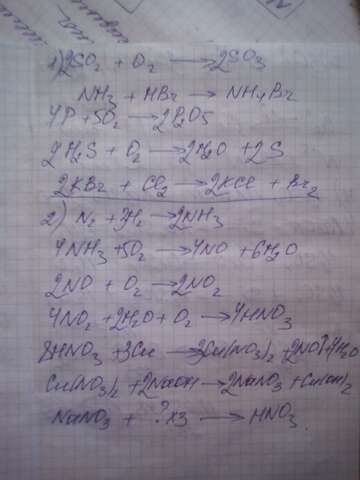 1) 2SO₂ + O₂ ⟶ 2SO₃
NH₃ + HBr → NH₄Br
4P + 5O₂ ⟶ 2P₂O₅
2H₂S + O₂ ⟶ 2H₂O + 2S
2KBr + Cl₂ ⟶ 2KCl + Br₂
2) N₂ + 3H₂ ⟶ 2NH₃
4NH₃ + 5O₂ ⟶ 4NO + 6H₂O
2NO + O₂ ⟶ 2NO₂
4NO₂ + 2H₂O + O₂ ⟶ 4HNO₃
8HNO₃ + 3Cu ⟶ 3Cu(NO₃)₂ + 2NO↑ + 4H₂O
Cu(NO₃)₂ + 2NaOH ⟶ 2NaNO₃ + Cu(OH)₂
NaNO₃ + ? х3 ⟶ HNO₃